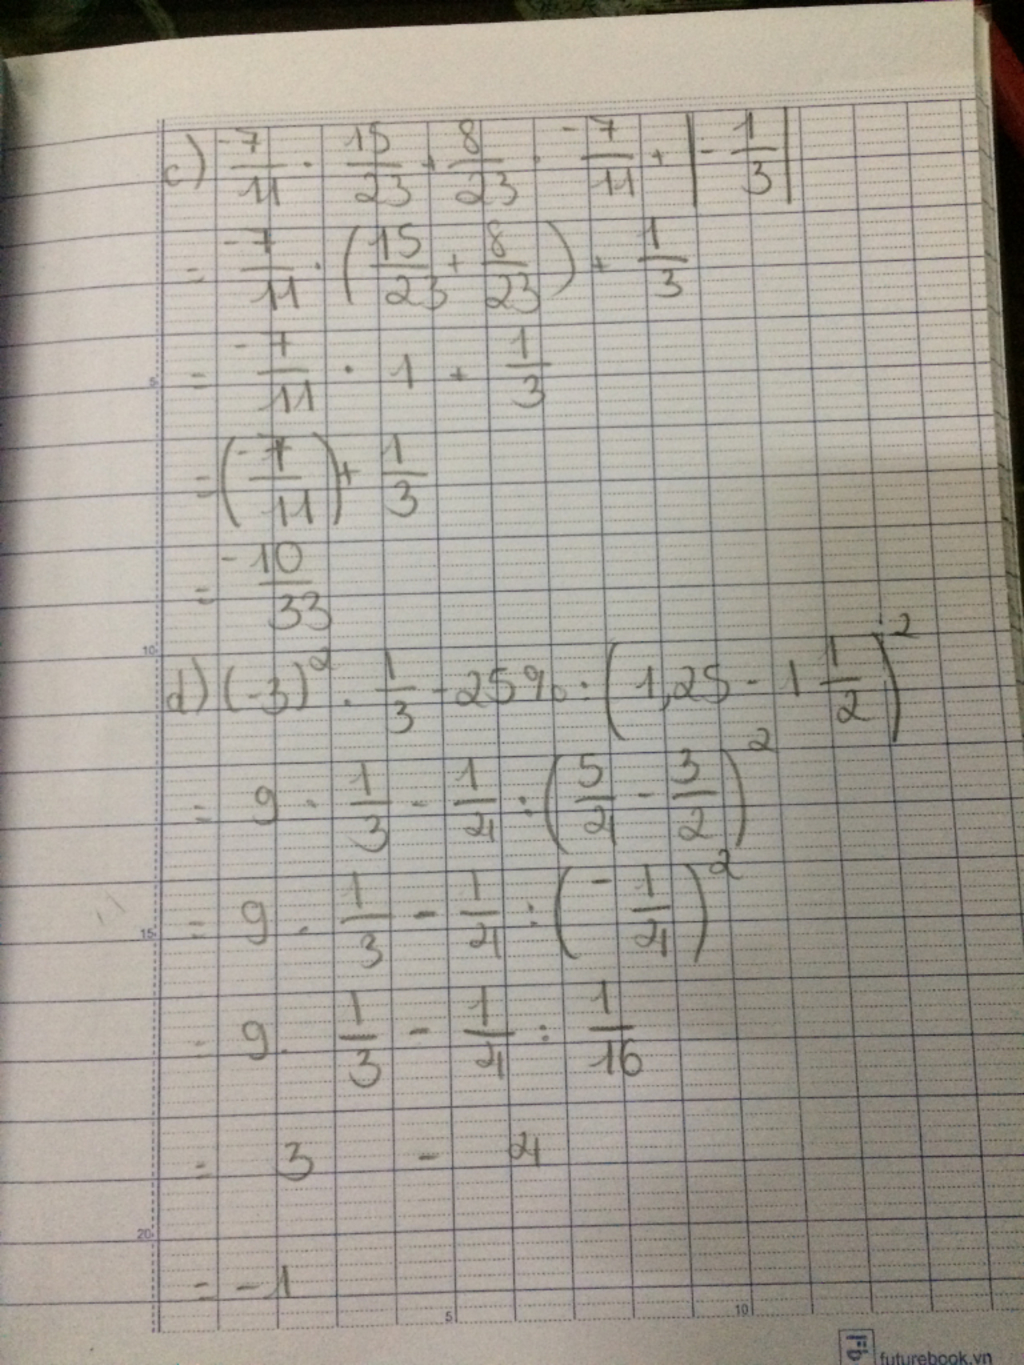 c) -7/11 . 15/23 + 8/23 . -7/11 + |-1/3|
= -7/11 . (15/23 + 8/23) + 1/3
= -7/11 . 1 + 1/3
= (-7/11) + 1/3
= -10/33
d) (-3)² . 1/3 - 25% : (1,25 - 1 1/2)²
= 9 . 1/3 - 1/4 : (5/4 - 3/2)²
= 9 . 1/3 - 1/4 : (-1/4)²
= 9 . 1/3 - 1/4 : 1/16
= 3 - 4
= -1
5
10
15
20
5
10
futurebook.vn